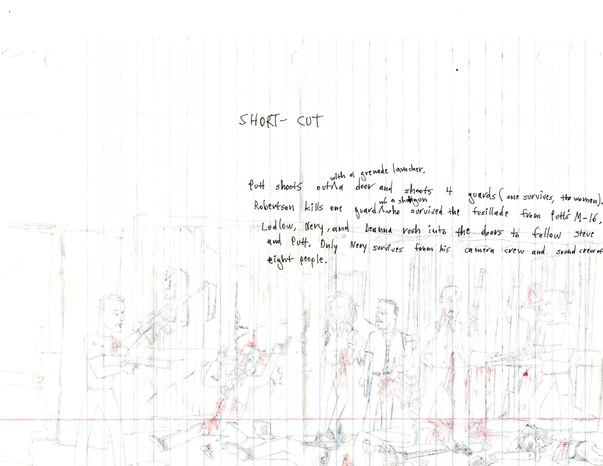 SHORT-CUT
with a grenade launcher,
Putt shoots out a door and shoots 4 guards (one survives, the woman).
w/ a shotgun
Robertson kills one guard who survived the fusillade from Putt's M-16.
Ludlow, Nery, and Deanna rush into the doors to follow Steve
and Putt. Only Nery survives from his camera crew and sound crew of
eight people.